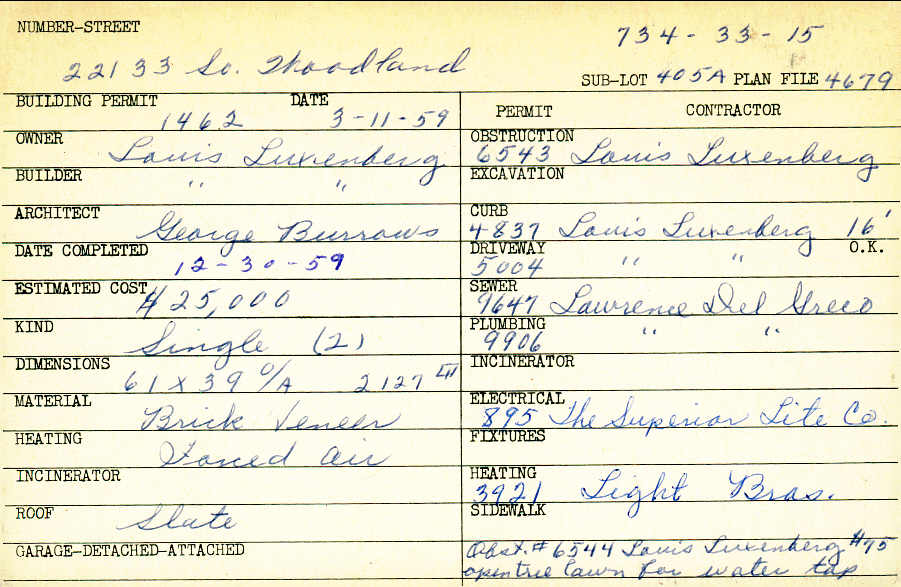 NUMBER-STREET
734-33-15
22133 So. Woodland
SUB-LOT 405A PLAN FILE 4679
BUILDING PERMIT DATE
1462 3-11-59
OWNER
Louis Luxenberg
BUILDER
" "
ARCHITECT
George Burrows
DATE COMPLETED
12-30-59
ESTIMATED COST
$25,000
KIND
Single (2)
DIMENSIONS
61 x 39 O/A 2127
MATERIAL
Brick Veneer
HEATING
Forced Air
INCINERATOR
ROOF
Slate
GARAGE-DETACHED-ATTACHED
PERMIT CONTRACTOR
OBSTRUCTION
6543 Louis Luxenberg
EXCAVATION
CURB
4837 Louis Luxenberg 16'
DRIVEWAY O.K.
5004 " "
SEWER
9647 Lawrence Del Greco
PLUMBING
9906 " "
INCINERATOR
ELECTRICAL
895 The Superior Lite Co.
FIXTURES
HEATING
3921 Light Bros.
SIDEWALK
Obst. # 6544 Louis Luxenberg $75
open tree lawn for water tap